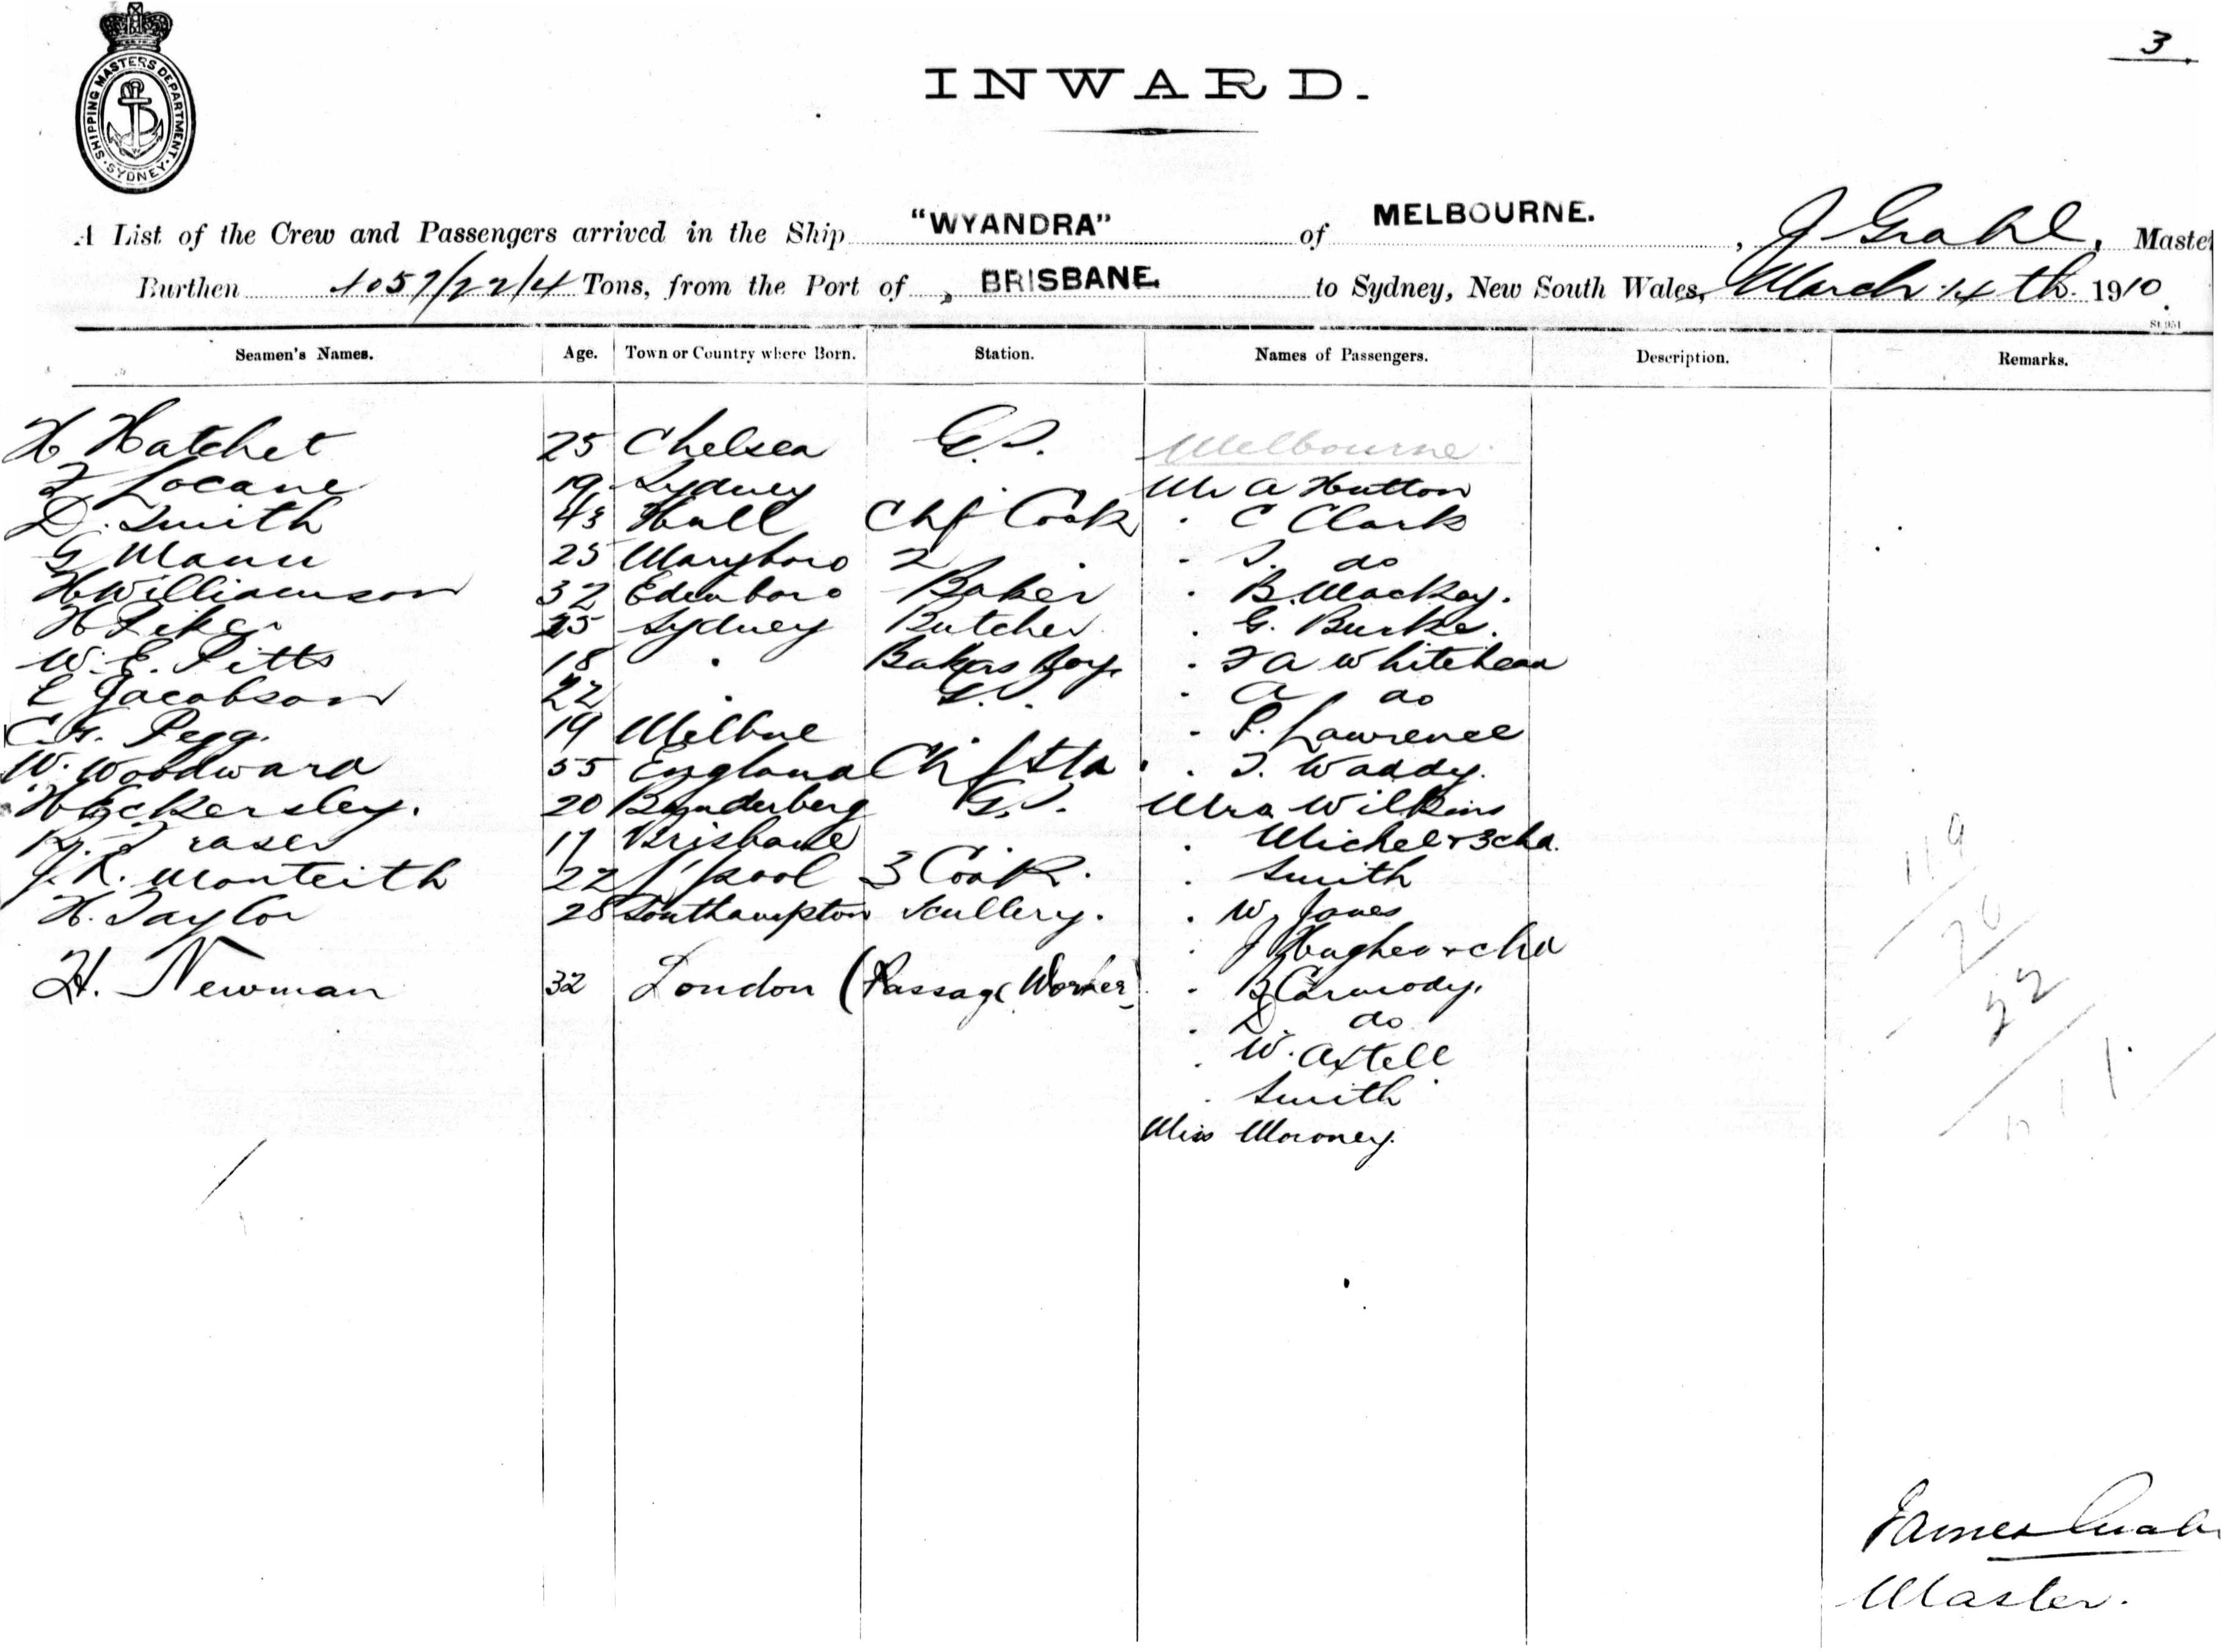 3
INWARD.
SHIPPING MASTERS DEPARTMENT. SYDNEY
A List of the Crew and Passengers arrived in the Ship "WYANDRA" of MELBOURNE. , J Grahl, Master
Burthen 1057/22/4 Tons, from the Port of BRISBANE. to Sydney, New South Wales, March 14th. 1910
Seamen's Names. Age. Town or Country where Born. Station. Names of Passengers. Description. Remarks.
H Hatchet 25 Chelsea G.S. Melbourne
Locane 19 Sydney " Mr A Hutton
D. Smith 43 Hull Chf Cook " C Clark
G Mann 25 Maryboro 2 " " do
H Williamson 32 Edinboro Baker " B. Mackay.
H Pike 25 Sydney Butcher " G. Burke.
W. E. Pitts 18 " Bakers Boy " F A Whitehead
E Jacobson 22 " G.S. " A do
C. G. Pegg. 19 Melbne " " P. Lawrence
W. Woodward 55 England Ch Stta " T. Waddy.
H Eckersley. 20 Bunderberg G.S. Mrs Wilkins
Fraser 17 Brisbane " " Michel + 3 chd.
J. R. Monteith 22 L'pool 3 Cook. " Smith
H. Taylor 28 Southampton Scullery. " W Jones
" J Hughes + chd
H. Newman 32 London (Passage Worker) " Carmody.
" do
" W. Axtell
" Smith
Miss Moroney.
119
22
James Grahl
Master.